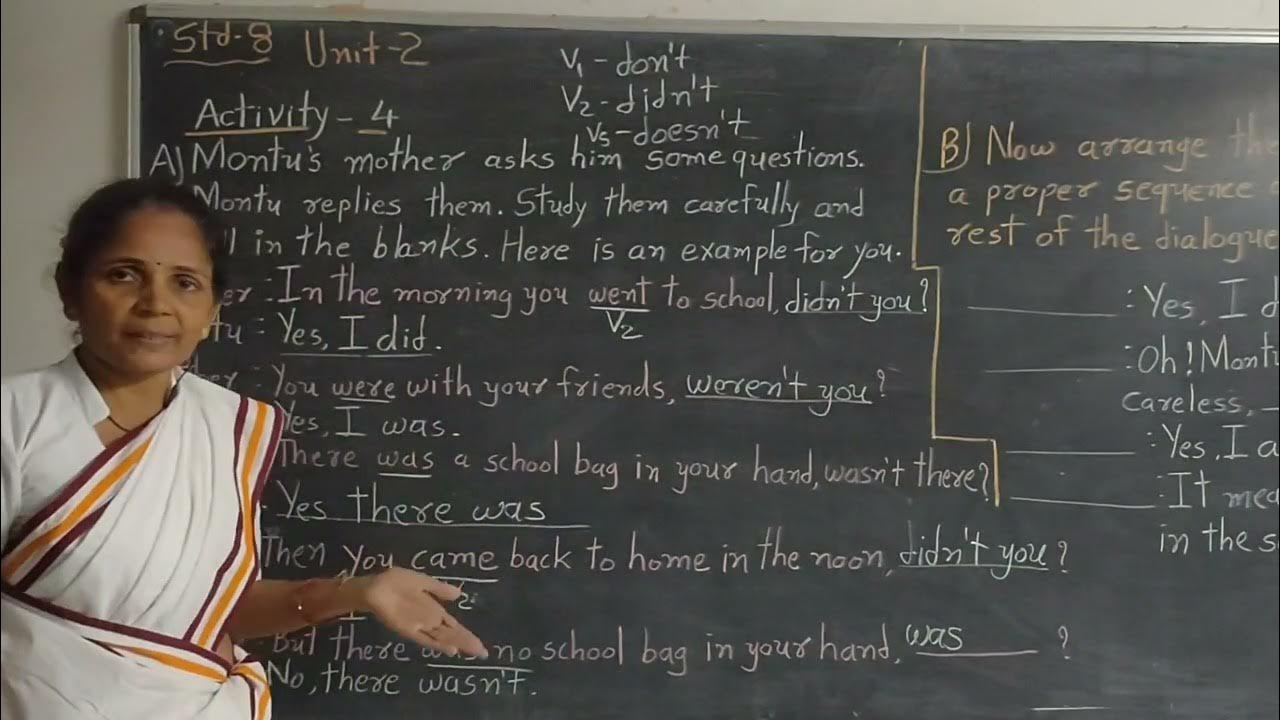 Std-8 Unit-2
V1 - don't
V2 - didn't
Vs - doesn't
Activity - 4
A) Montu's mother asks him some questions.
Montu replies them. Study them carefully and
in the blanks. Here is an example for you.
: In the morning you went to school, didn't you?
V2
: Yes, I did.
: You were with your friends, weren't you?
Yes, I was.
There was a school bag in your hand, wasn't there?
Yes there was
Then you came back to home in the noon, didn't you?
But there was no school bag in your hand, was ?
No, there wasn't.
B) Now arrange the
a proper sequence
rest of the dialogue
: Yes, I
: Oh! Montu
careless,
: Yes, I
: It
in the